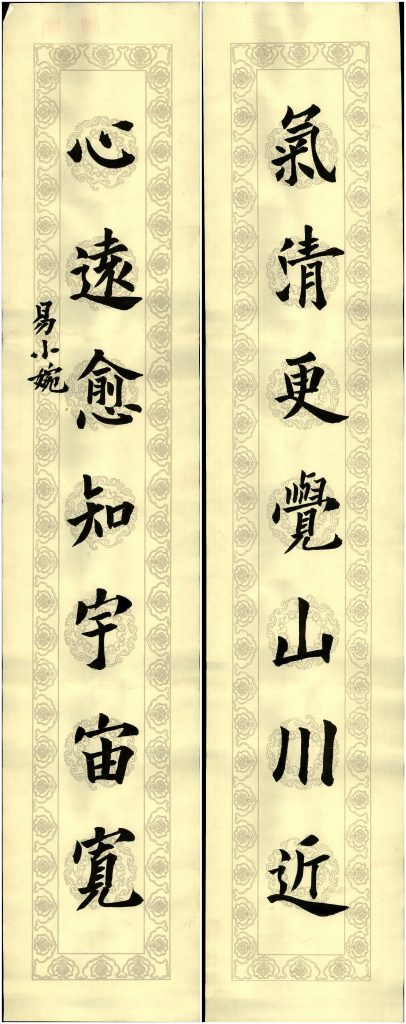 氣清更覺山川近
心遠愈知宇宙寬
易小婉